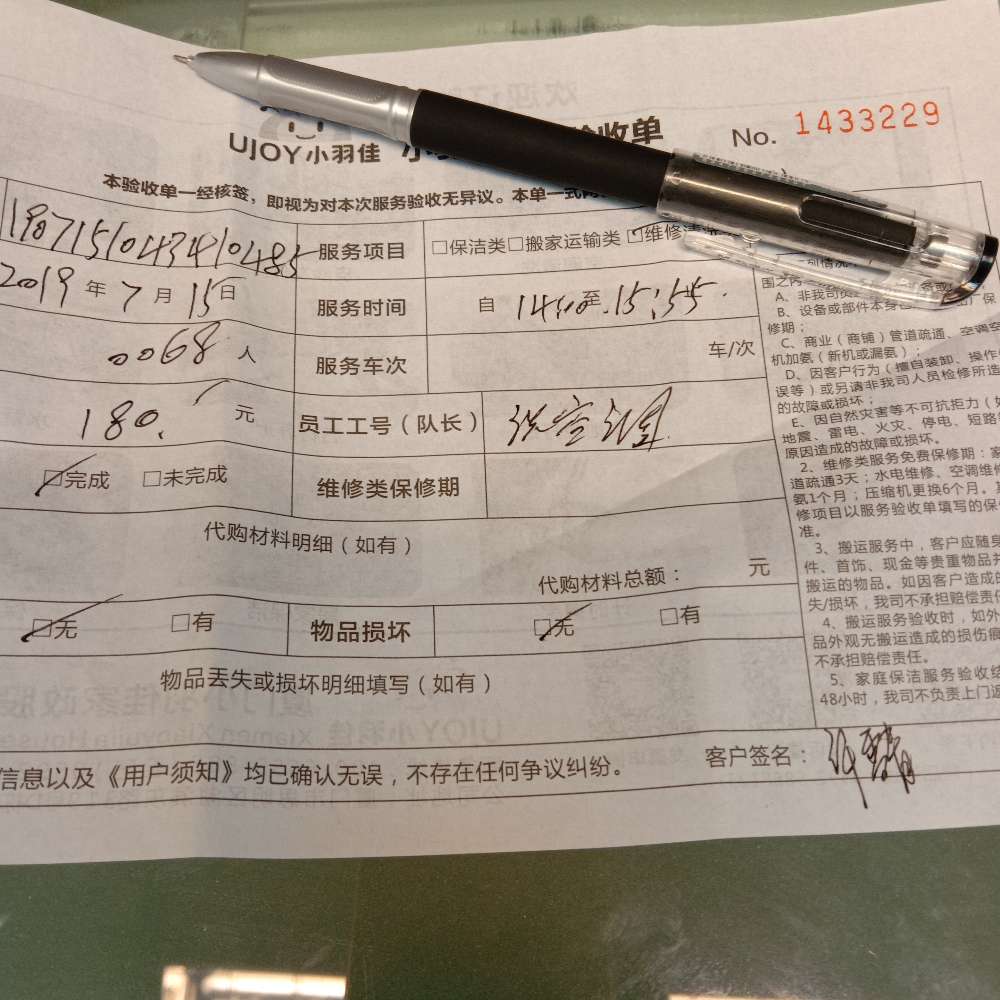 UJOY小羽佳 小 验收单 No. 1433229
本验收单一经核签，即视为对本次服务验收无异议。本单一式
服务项目 □保洁类□搬家运输类☑维修清洗
2019年7月15日 服务时间 自 至15:55.
0068人 服务车次 车/次
180.元 员工工号（队长）洗空调
☑完成 □未完成 维修类保修期
代购材料明细（如有）
代购材料总额： 元
☑无 □有 物品损坏 ☑无 □有
物品丢失或损坏明细填写（如有）
信息以及《用户须知》均已确认无误，不存在任何争议纠纷。 客户签名：
围之内
A、非我司
B、设备或部件本身
修期；
C、商业（商铺）管道疏通、空调空
机加氨（新机或漏氨）；
D、因客户行为（擅自装卸、操作
误等）或另请非我司人员检修所造
的故障或损坏；
E、因自然灾害等不可抗拒力（如
地震、雷电、火灾、停电、短路
原因造成的故障或损坏。
2、维修类服务免费保修期：家
道疏通3天；水电维修、空调维
氨1个月；压缩机更换6个月。其
修项目以服务验收单填写的保
准。
3、搬运服务中，客户应随身
件、首饰、现金等贵重物品并
搬运的物品。如因客户造成的
失/损坏，我司不承担赔偿责任
4、搬运服务验收时，如外
品外观无搬运造成的损伤假
不承担赔偿责任。
5、家庭保洁服务验收结
48小时，我司不负责上门返